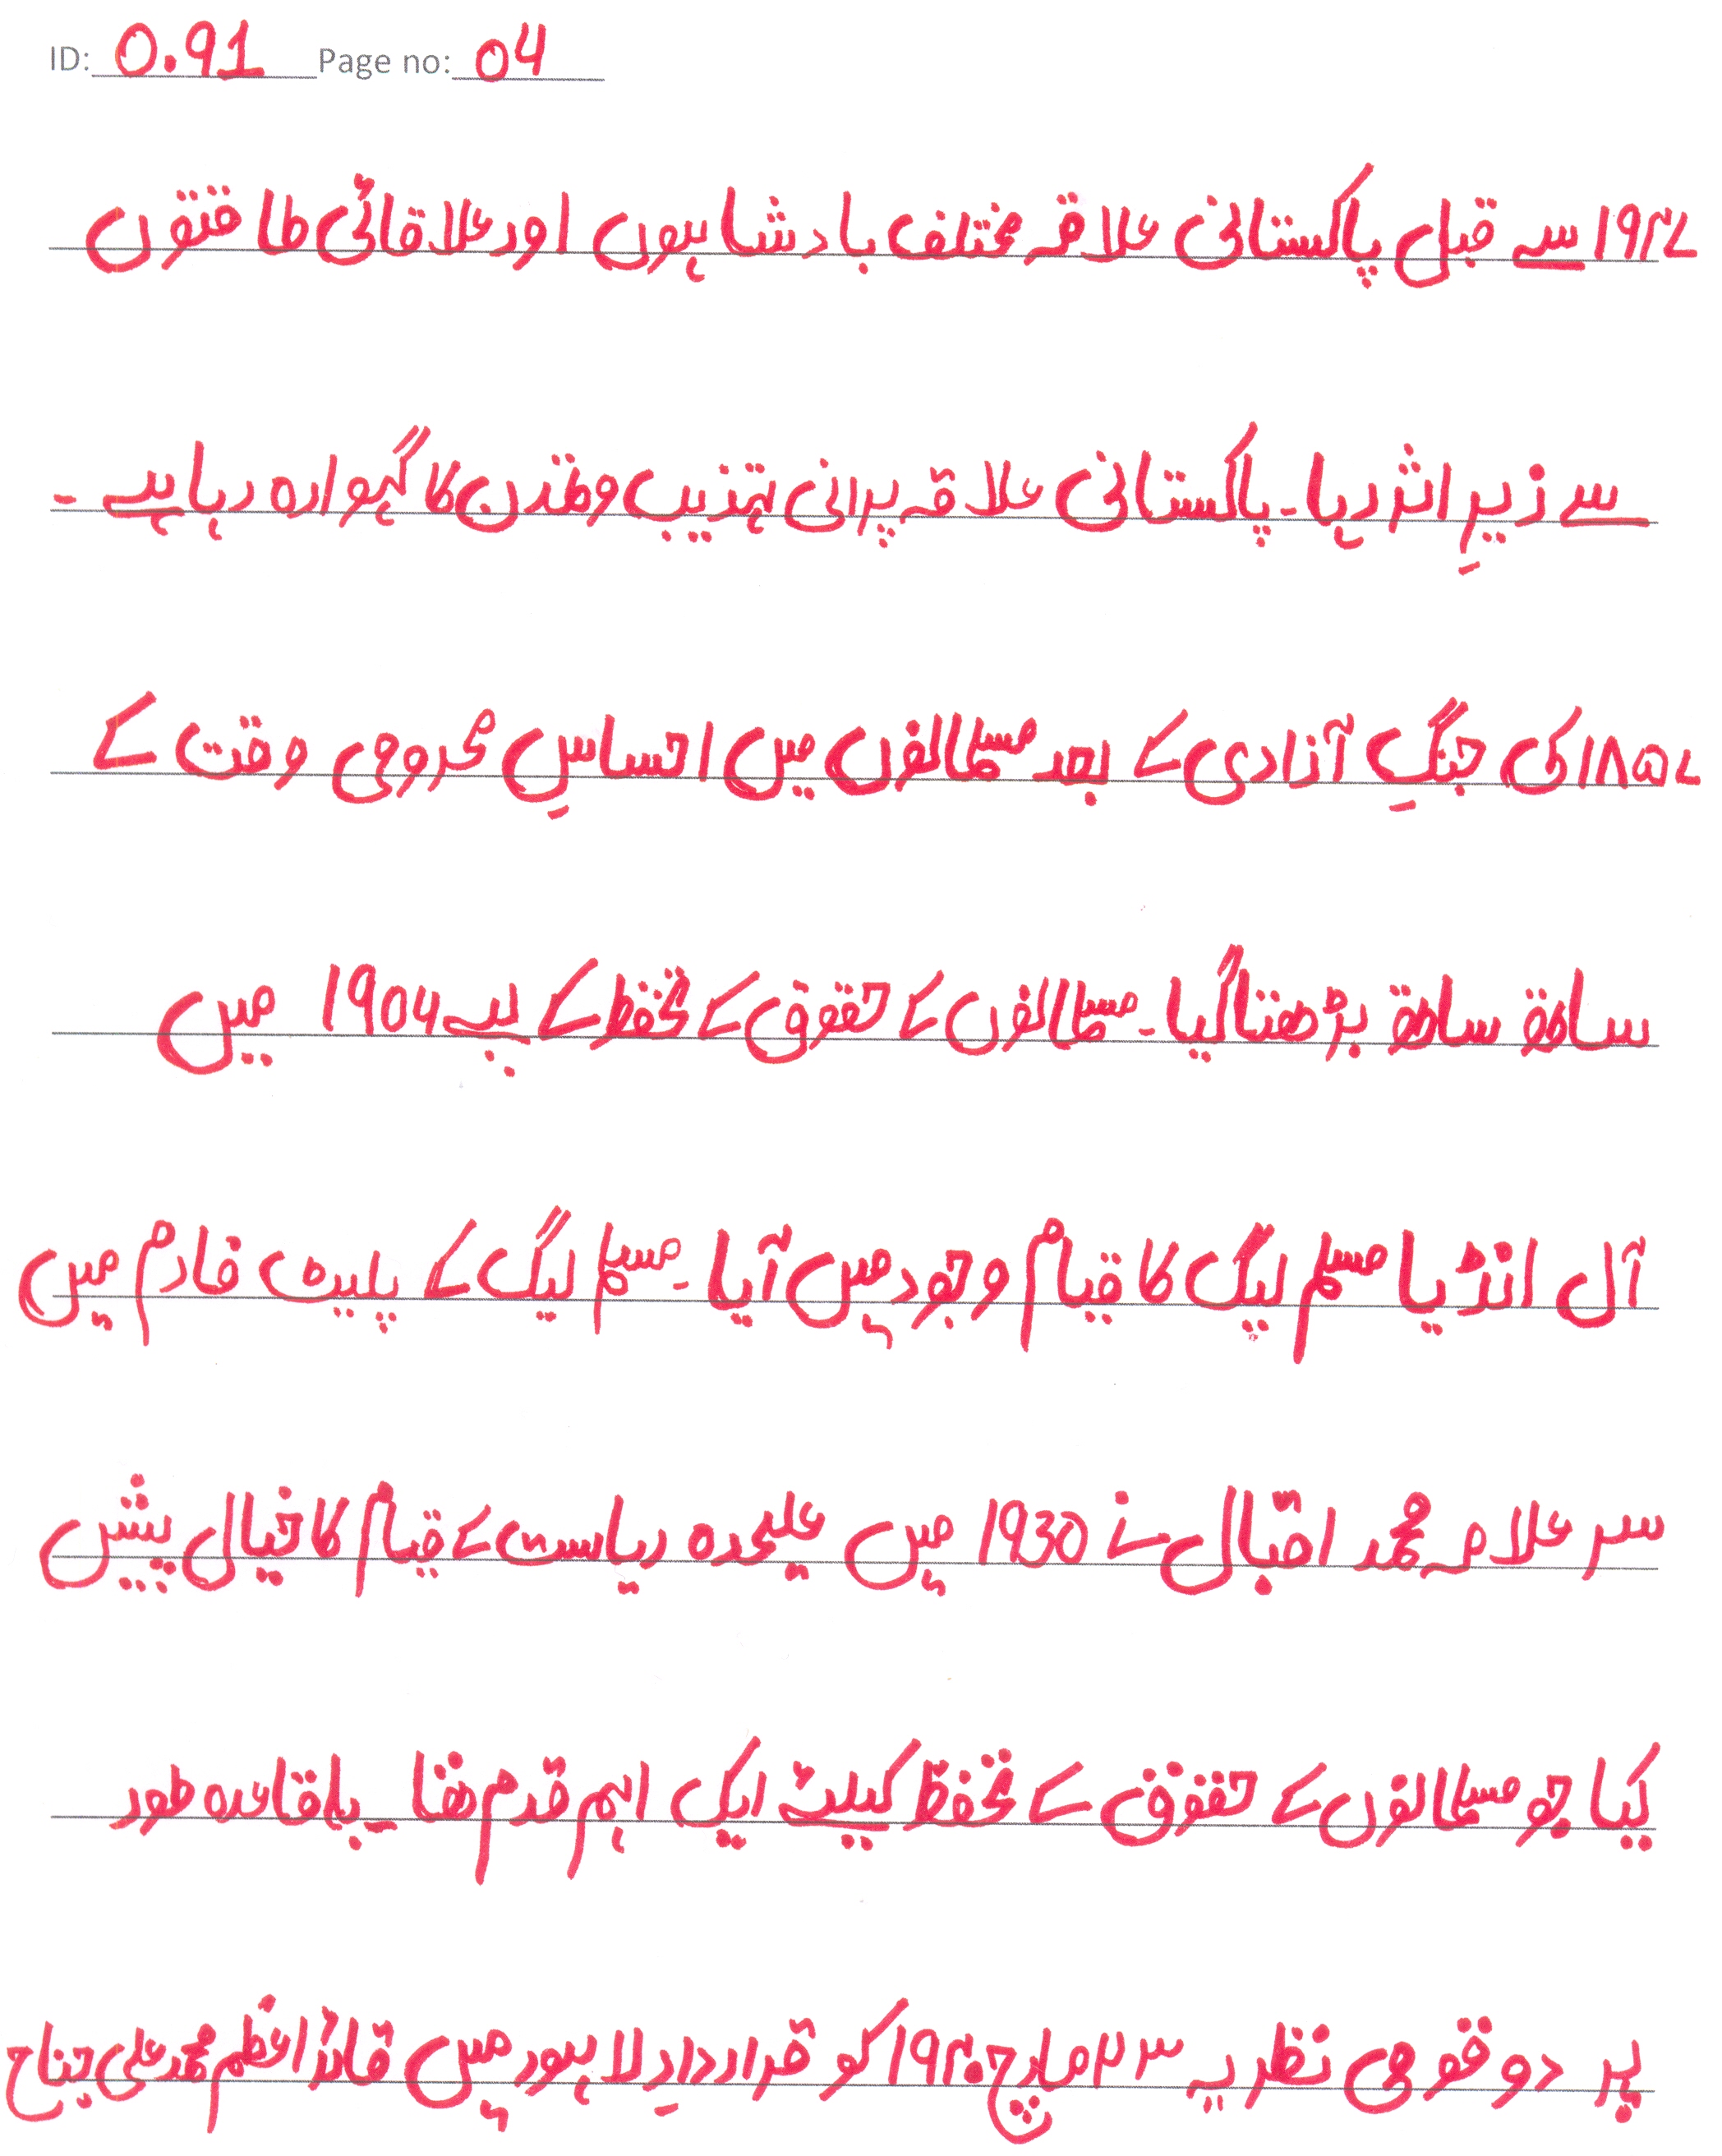 ID: 0.91 Page no: 04
۱۹۴۷ سے قبل پاکستانی علاقہ مختلف بادشاہوں اور علاقائی طاقتوں
سے زیرِ اثر رہا۔ پاکستانی علاقہ پرانی تہذیب و تمدن کا گہوارہ رہا ہے ۔
۱۸۵۷ کی جنگِ آزادی کے بعد مسلمانوں میں احساسِ محرومی وقت کے
ساتھ ساتھ بڑھتا گیا۔ مسلمانوں کے حقوق کے تحفظ کے لیے 1904 میں
آل انڈیا مسلم لیگ کا قیام وجود میں آیا ۔ مسلم لیگ کے پلیٹ فارم میں
سر علامہ محمد اقبال نے 1930 میں علیحدہ ریاست کے قیام کا خیال پیش
کیا جو مسلمانوں کے حقوق کے تحفظ کیلئے ایک اہم قدم تھا ۔ باقاعدہ طور
پر دو قومی نظریہ ۲۳ مارچ ۱۹۴۰ کو قراردادِ لاہور میں قائد اعظم محمد علی جناح